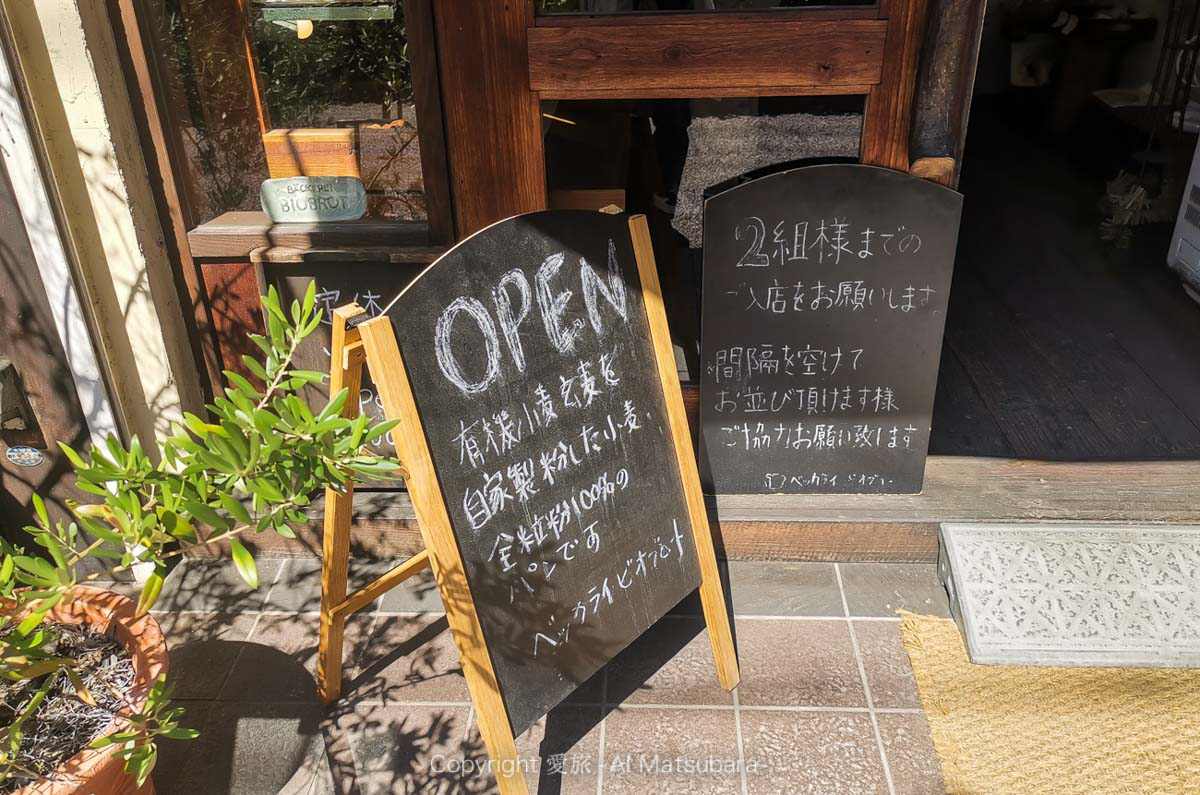 BÄCKEREI
BIOBROT
定休
OPEN
有機小麦玄麦を
自家製粉した小麦
全粒粉100%の
パンです
ベッカライビオブロート
2組様までの
ご入店をお願いします
*間隔を空けて
お並び頂けます様
ご協力お願い致します
ベッカライ ビオブ
Copyright 愛旅 -Ai Matsubara-